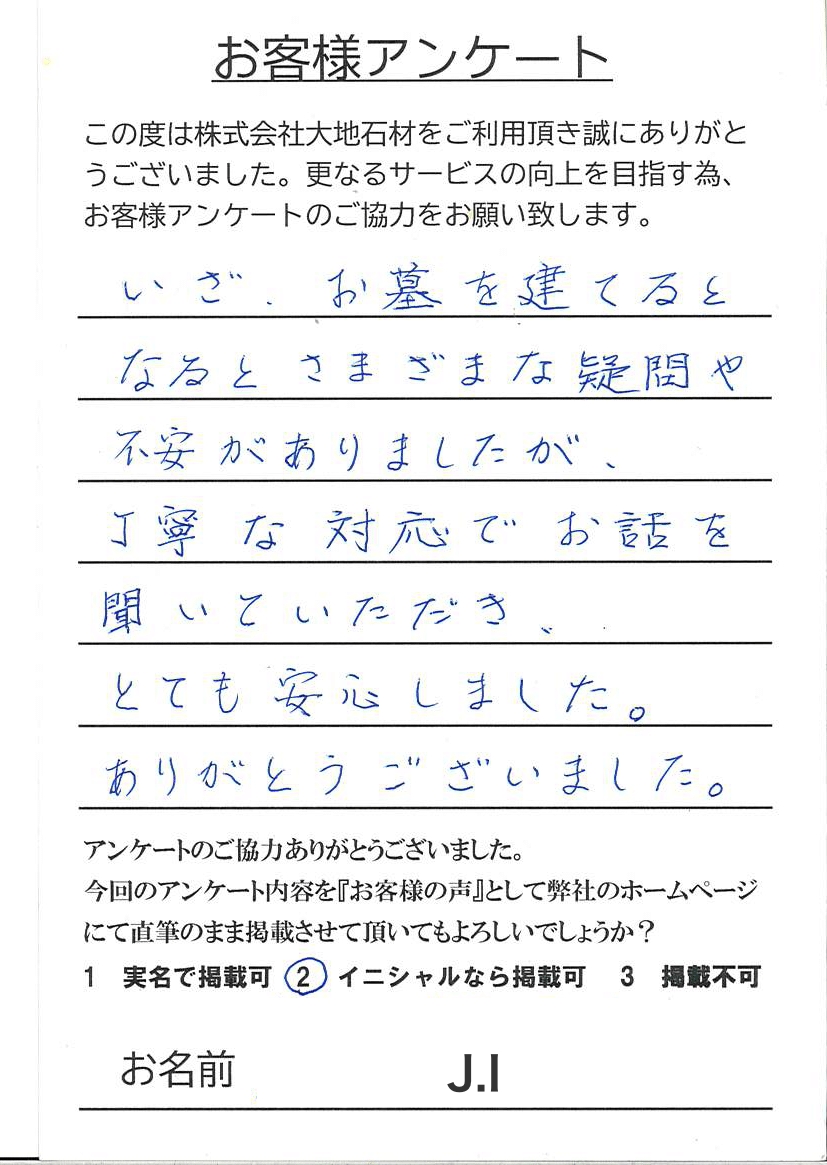 お客様アンケート
この度は株式会社大地石材をご利用頂き誠にありがと
うございました。更なるサービスの向上を目指す為、
お客様アンケートのご協力をお願い致します。
いざ、お墓を建てると
なるとさまざまな疑問や
不安がありましたが、
丁寧な対応でお話を
聞いていただき、
とても安心しました。
ありがとうございました。
アンケートのご協力ありがとうございました。
今回のアンケート内容を『お客様の声』として弊社のホームページ
にて直筆のまま掲載させて頂いてもよろしいでしょうか？
1 実名で掲載可 2 イニシャルなら掲載可 3 掲載不可
お名前 J.I